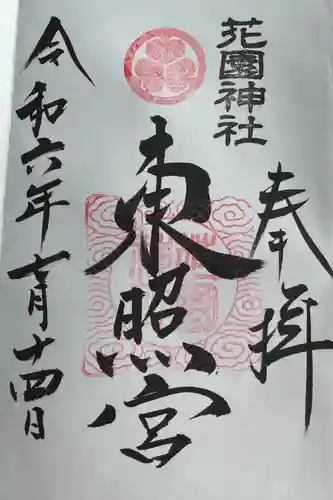 花園神社
奉拝
東照宮
令和六年七月十四日